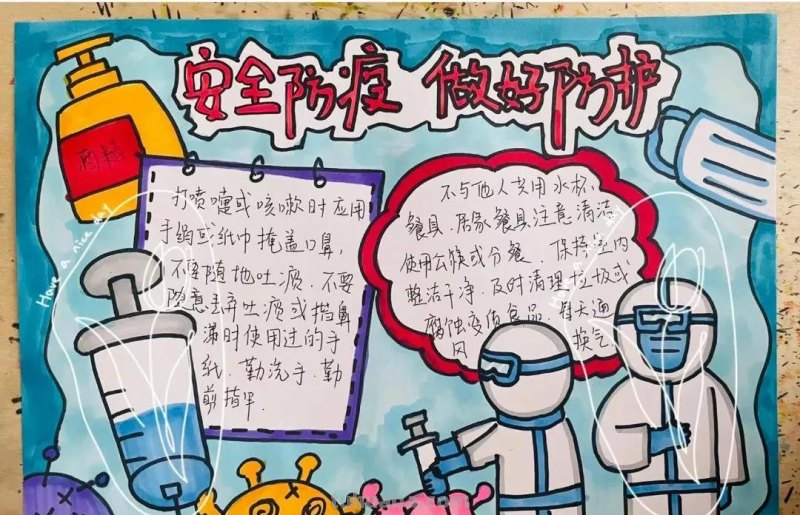 安全防疫 做好防护
酒精
打喷嚏或咳嗽时应用
手绢或纸巾掩盖口鼻,
不要随地吐痰.不要
随意丢弃吐痰或擤鼻
涕时使用过的手
纸.勤洗手.勤
剪指甲.
不与他人共用水杯、
餐具.居家餐具注意清洁
使用公筷或分餐.保持室内
整洁干净.及时清理垃圾或
腐蚀变质食品.每天通
风 换气
Have a nice day